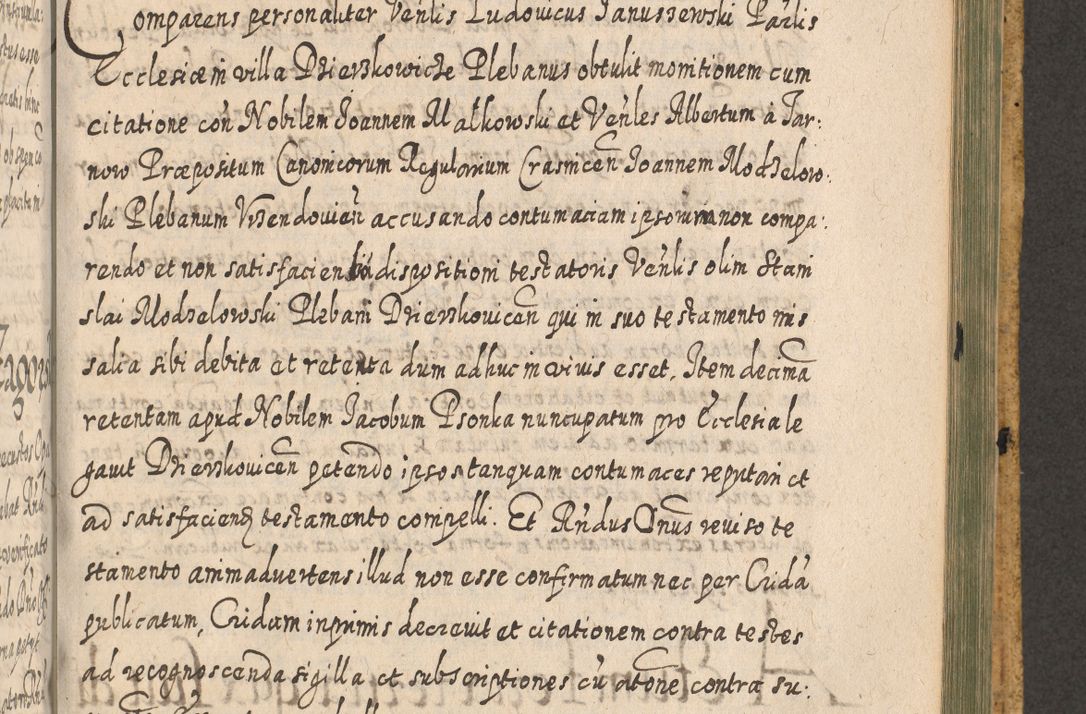 Comparens personaliter Venlis Ludovicus Janussewski Parlis
Ecclesiæ in villa Dzierzkowicze Plebanus obtulit monitionem cum
citatione con Nobilem Joannem Malkowski et Venles Albertum à Tar:
now Præpositum Canonicorum Regularium Crasnicen Joannem Modzelow:
ski Plebanum Vrzendovien accusando contumaciam ipsorum non compa:
rendo et non satisfacien dispositioni testatoris Venlis olim Stani
slai Modzelowski Plebani Dzierzkovicen qui in suo testamento mis
salia sibi debita et retenta dum adhuc in vivis esset, Item decima
retentam apud Nobilem Jacobum Psonka nuncupatum pro Ecclesia le
gavit Dzierzkovicen petendo ipsos tanquam contumaces reputari et
ad satisfaciend testamento compelli. Et Rndus Dnus reviso te
stamento animadvertens illud non esse confirmatum nec per Crida
publicatum, Cridam inprimis decrevit et citationem contra testes
ad recognoscenda sigilla et subscriptiones cu atone contra su: